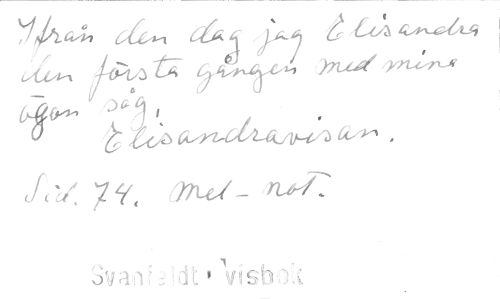 Ifrån den dag jag Elisandra
den första gången med mina
ögon såg,
Elisandravisan.
Sid. 74. Mel-not.
Svanfeldt visbok